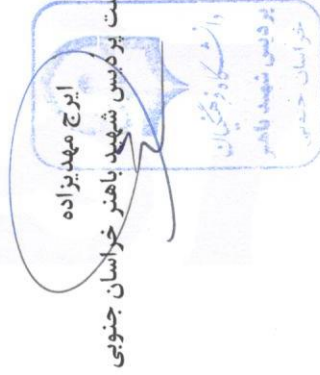 ایرج مهدیزاده
ست پردیس شهید باهنر خراسان جنوبی
دانشگاه فرهنگیان
پردیس شهید باهنر
خراسان جنوبی